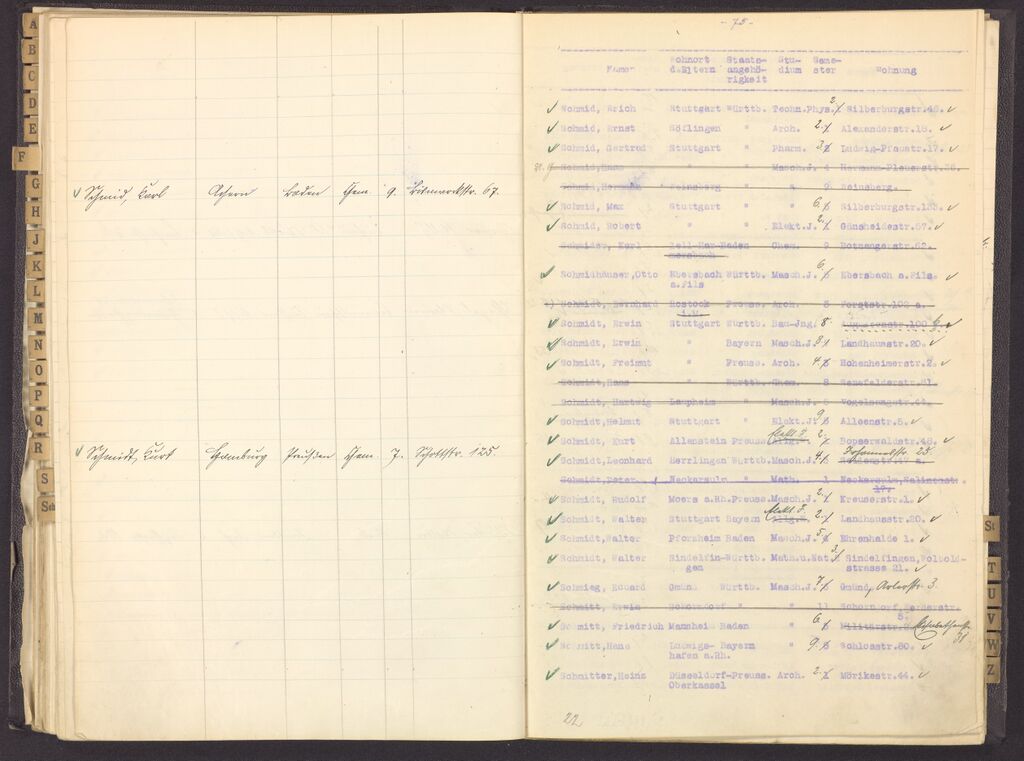 A
B
C
D
E
F
G
H
J
K
L
M
N
O
P
Q
R
S
Sch
Schmid, Karl Achern Baden Chem. 9. Bismarckstr. 67.
Schmidt, Kurt Hamburg Preußen Chem. 7. Schottstr. 125.
- 75 -
Wohnort Staats- Stu- Seme-
Namen d.Eltern angehö- dium ster Wohnung
rigkeit
Schmid, Erich Stuttgart Württb. Techn.Phys. 2 Silberburgstr.42.
Schmid, Ernst Söflingen " Arch. 2. Alexanderstr.18.
Schmid, Gertrud Stuttgart " Pharm. 3 Ludwig-Pfaustr.17.
Schmid, Hans " " Masch.J. 4 Hermann-Pleuerstr.36.
Schmid, Hermann Weinsberg " " 6 Weinsberg.
Schmid, Max Stuttgart " " 6. Silberburgstr.
Schmid, Robert " " Elekt.J. 2. Gänsheidestr.57.
Schmider, Karl Zell-Har-Baden Chem. 9 Botnangerstr.62.
mersbach
Schmidhäuser,Otto Ebersbach Württb. Masch.J. 6. Ebersbach a.Fils.
a.Fils
Schmidt, Bernhard Rostock Preuss. Arch. 5 Forststr.102 a.
i.M.
Schmidt, Erwin Stuttgart Württb. Bau-Jng. 8. Augustenstr.100
Schmidt, Erwin " Bayern Masch.J. 3 Landhausstr.20.
Schmidt, Freimut " Preuss. Arch. 4 Hohenheimerstr.2.
Schmidt, Hans " Württb. Chem. 8 Senefelderstr.81
Schmidt, Hartwig Laupheim " Masch.J. 6 Vogelsangstr.44.
Schmidt, Helmut Stuttgart " Elekt.J. 9 Alleenstr.5.
Schmidt, Kurt Allenstein Preuss. Elekt.J. 2. Bopserwaldstr.48.
Johannesstr. 25.
Schmidt,Leonhard Herrlingen Württb. Masch.J. 4
Schmidt,Peter Neckarsulm " Math. 1 Neckarsulm,Salinenstr.
17.
Schmidt, Rudolf Moers a.Rh.Preuss. Masch.J. 2. Kreuserstr.1.
Schmidt, Walter Stuttgart Bayern Elekt.J. 2. Landhausstr.20.
Schmidt,Walter Pforzheim Baden Masch.J. 5 Ehrenhalde 1.
Schmidt, Walter Sindelfin-Württb. Math.u.Nat. 3 Sindelfingen,Wolbold-
gen strasse 21.
Schmieg, Eduard Gmünd Württb. Masch.J. 7 Gmünd, Arlerstr. 3.
Schmitt, Erwin Schorndorf " " 11 Schorndorf,Werderstr.
5.
Schmitt, Friedrich Mannheim Baden " 6. Militärstr.
38
Schmitt,Hans Ludwigs- Bayern " 9. Schloss­str.80.
hafen a.Rh.
Schmitter,Heinz Düsseldorf-Preuss. Arch. 2. Mörikestr.44.
Oberkassel
22
St
T
U
V
W
Z